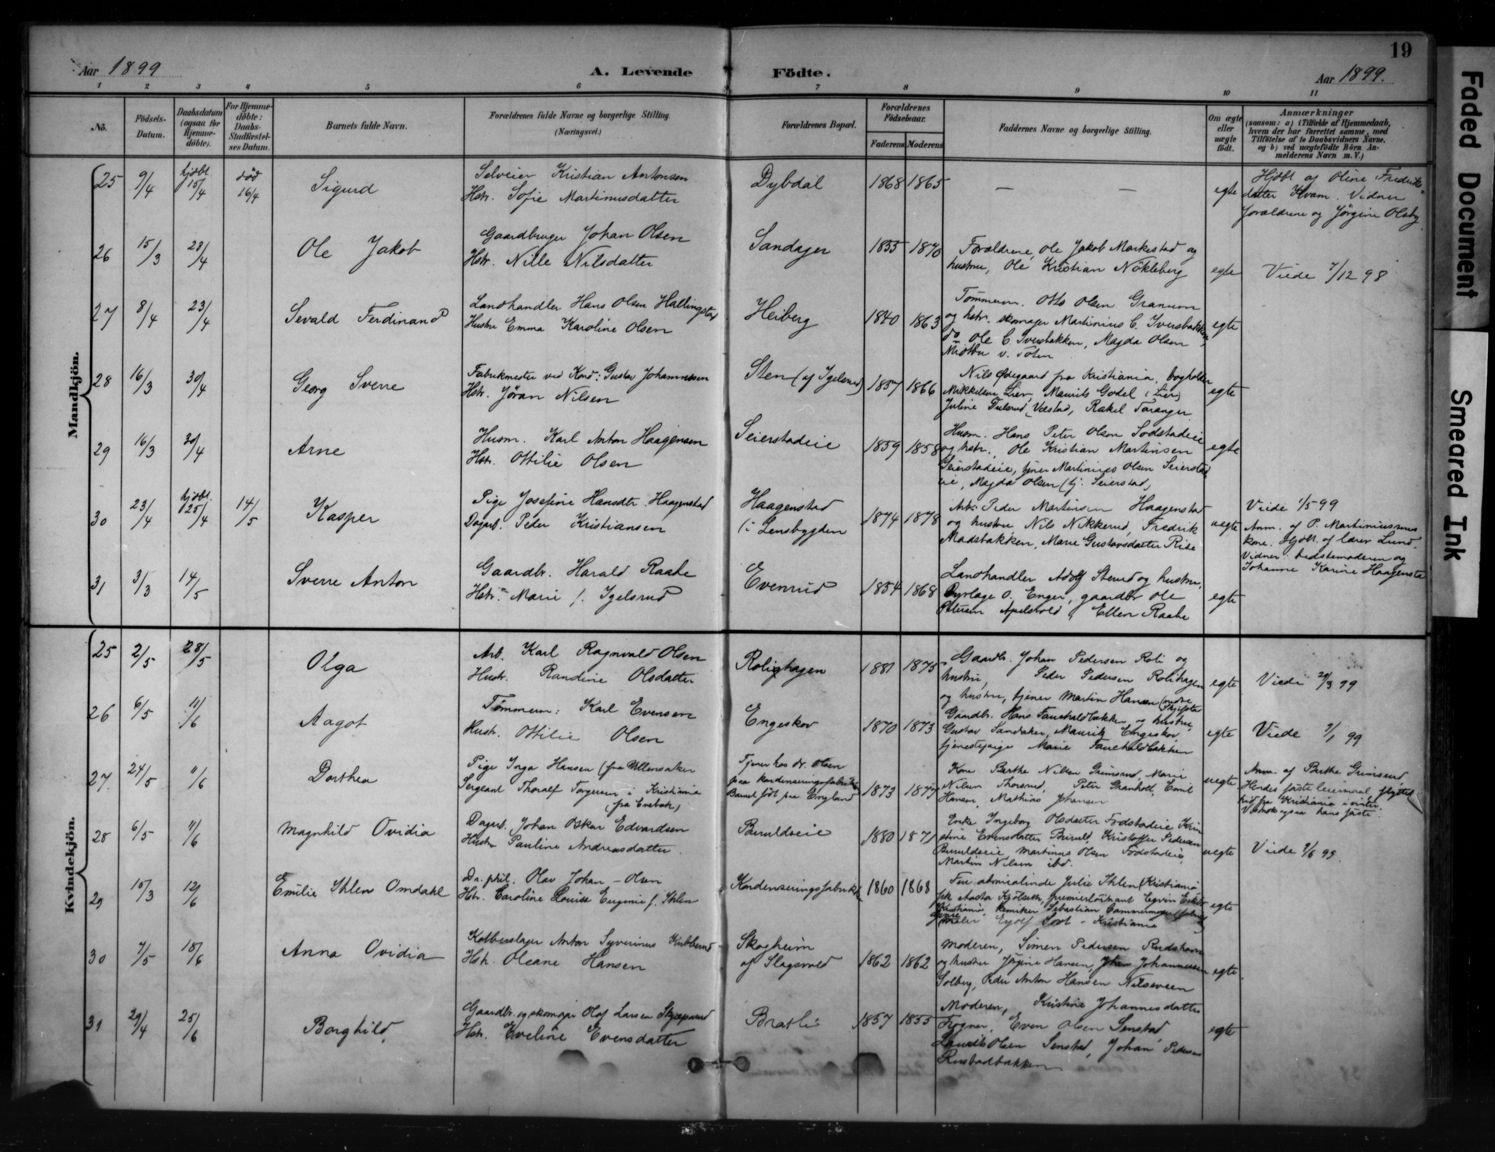 19
Aar 1899
A. Levende Fødte.
Aar 1899.
1 2 3 4 5 6 7 8 9 10 11
No.
Födsels-Datum.
Daabsdatum (ogsaa for Hjemmedöbte).
For Hjemmedöbte: Daabs-Stadfæstelses Datum.
Barnets fulde Navn.
Forældrenes fulde Navne og borgerlige Stilling. (Næringsvei.)
Forældrenes Bopæl.
Forældrenes Födselsaar.
Faderens Moderens
Faddernes Navne og borgerlige Stilling.
Om ægte eller uægte födt.
Anmærkninger
Mandkjön.
25 9/4 hjdbt 15/4 död 16/4 Sigurd
Selveier Kristian Antonsen
Hstr. Sofie Martinusdatter
Dybdal 1868 1865 — — egte
Hjdbt af Oline Fredriks-
datter Kvam. Vidner
forældrene og Jörgine Olsby.
26 15/3 23/4 Ole Jakob
Gaardbruger Johan Olsen
Hstr. Nille Nilsdatter
Sandager 1855 1870
Forældrene, Ole Jakob Markestad og
hustru, Ole Kristian Nökleberg
egte Viede 7/12 98
27 8/4 23/4 Sevald Ferdinand
Landhandler Hans Olsen Hallingstad
Hustru Emma Karoline Olsen
Heiberg 1840 1863
Tömmerm. Otto Olsen Granum
og hstr. skomager Martinius C. Sverstadbakken,
do Ole C. Sverstbakken, Magda Olsen
v. Toten
egte
28 16/3 30/4 Georg Sverre
Fabrikmester ved Kond: Gustav Johannessen
Hstr. Jöran Nilsen
Sten (af Igelsrud) 1857 1866
Nils Ödegaard fra Kristiania, bogholder
Mikkelsen Lier, Maurits Godel (Lier)
egte
29 16/3 30/4 Arne
Husm. Karl Anton Haagensen
Hstr. Ottilie Olsen
Seierstadeie 1859 1858
Husm. Hans Peter Olsen Sodstadeie
og hstr., Ole Kristian Martinsen
Seierstadeie, tjener Martinius Olsen Seierstad-
eie, Magda Olsen tj. Seierstad,
egte
30 23/4 hjdbt 25/4 14/5 Kasper
Pige Josefine Hansdtr. Haagenstad
Dagarb. Peder Kristiansen
Haagenstad
(i Lensbygden 1874 1878
Arb. Peder Martinsen Haagenstad
og hustru Nils Nikkerud, Fredrik
Madsbakken, Marie Gustavsdatter Rise
uegte
Viede 1/5 99
Anm. af P. Martiniussens
kone. Hjdbt. af lærer Lund.
Vidner bedstemoderen og
Johanne Karine Haagensta
31 3/3 14/5 Sverre Anton
Gaardbr. Harald Raabe
Hstr. Marie f. Igelsrud
Evenrud 1854 1868
Landhandler Adolf Stenrud og hustru,
Dyrlæge O. Enger, gaardbr Ole
Petersen Apelsvold, Ellen Raabe
egte
Kvindekjön.
25 2/5 28/5 Olga
Arb. Karl Ragnvald Olsen
Hustr. Randine Olsdatter
Rolighagen 1881 1875
Gaardb. Johan Pedersen Roli og
hustru, Peder Pedersen Rolighagen
og hustru, tjener Martin Hansen
egte Viede 2/3 99
26 6/5 11/6 Aagot
Tömmerm: Karl Evensen
Hustr. Ottilie Olsen
Engeskov 1870 1873
Gaardbr. Hans Fauchald Lekke og hustru
Gustav Sandaker, Maurits Engeskov
tjenestepige Marie Fauchald
egte Viede 2/1 99
27. 24/5 11/6 Dorthea
Pige Inga Hansen (fra Ullensaker
Sergeant Thoralf Torgersen i Kristiania
(fra Enebak)
Tjener hos dr. Olsen
paa kondenseringsfabrik
Barnet födt paa England 1873 1877
Kone Berthe Nilsen Grimsrud, Marie
Nilsen Thorsrud, Peter Granholt, Emil
Hansen, Mathias Johansen
uegte
Anm. af Berthe Grimsrud
28 6/5 11/6 Magnhild Ovidia
Dagarb. Johan Oskar Edvardsen
Hustr. Pauline Andreasdatter
Buruldseie 1880 1871
Enke Ingeborg Olsdatter Fodstadeie Kris
tine Evensdatter Burull, Kristoffer Pedersen
Buruldseie Martinus Olsen Fodstadeie
Martin Nilsen ibd.
uegte Viede 2/6 99.
29 15/3 12/6 Emilie Ihlen Omdahl
Dr. phil. Olav Johan-Olsen
Hstr. Caroline Louise Eugenie f. Ihlen
Kondenseringsfabrikk 1860 1868
Fru admiralinde Julie Ihlen (Kristiania
Kristiania
egte
30 7/5 15/6 Anna Ovidia
Kobberslager Anton Syverinus Kubberud
Hstr. Oleane Hansen
Skogheim
af Slagsvold 1862 1862
Moderen, Simen Pedersen Rudshaven
og hustru Jörgine Hansen, Johan Johannessen
Solberg, Peder Anton Hansen Nilseveen
egte
31 29/4 25/6 Borghild,
Gaardbr. og skomager Olaf Larsen
Hstr. Eveline Evensdatter
Bratli 1857 1855
Moderen, Kristine Johannesdatter
Fogner, Even Olsen Senstad
Laurits Olsen Senstad, Johan Pedersen
egte
Faded Document
Smeared Ink